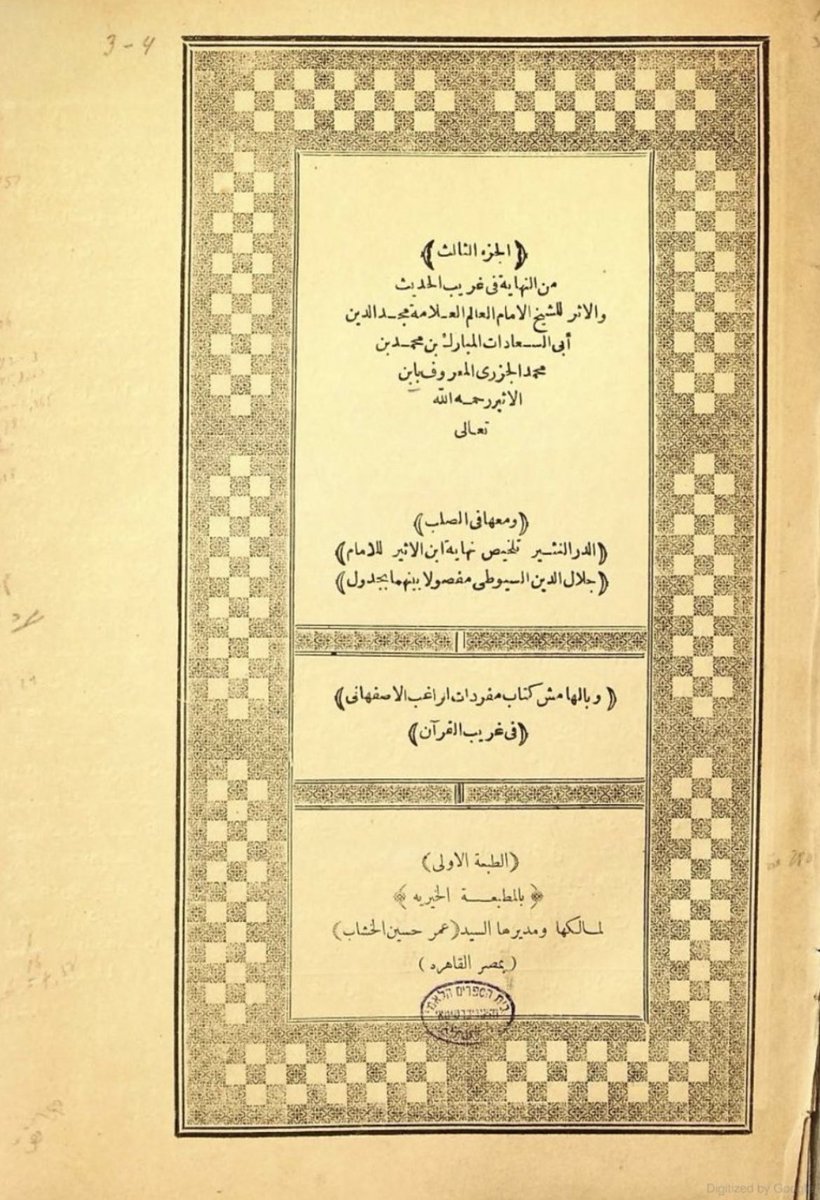 3-4
﴿الجزء الثالث﴾
من النهاية فى غريب الحديث
والاثر للشيخ الامام العالم العـلامة مجـد الدين
أبى السـعادات المبارك بن محمـد بن
محمد الجزرى المعروف بابن
الاثير رحمـه الله
تعالى
﴿ومعها فى الصلب﴾
﴿الدر النثـير تلخيص نهاية ابن الاثير للامام﴾
﴿جلال الدين السيوطى مفصولا بينهما بجدول﴾
﴿وبالهامش كتاب مفردات الراغب الاصفهانى﴾
﴿فى غريب القرآن﴾
(الطبعة الاولى)
﴿بالمطبعـــة الخيريه﴾
لمالكها ومديرها السيد (عمر حسين الخشاب)
(بمصر القاهره)
בית הספרים הלאומי
Digitized by Google